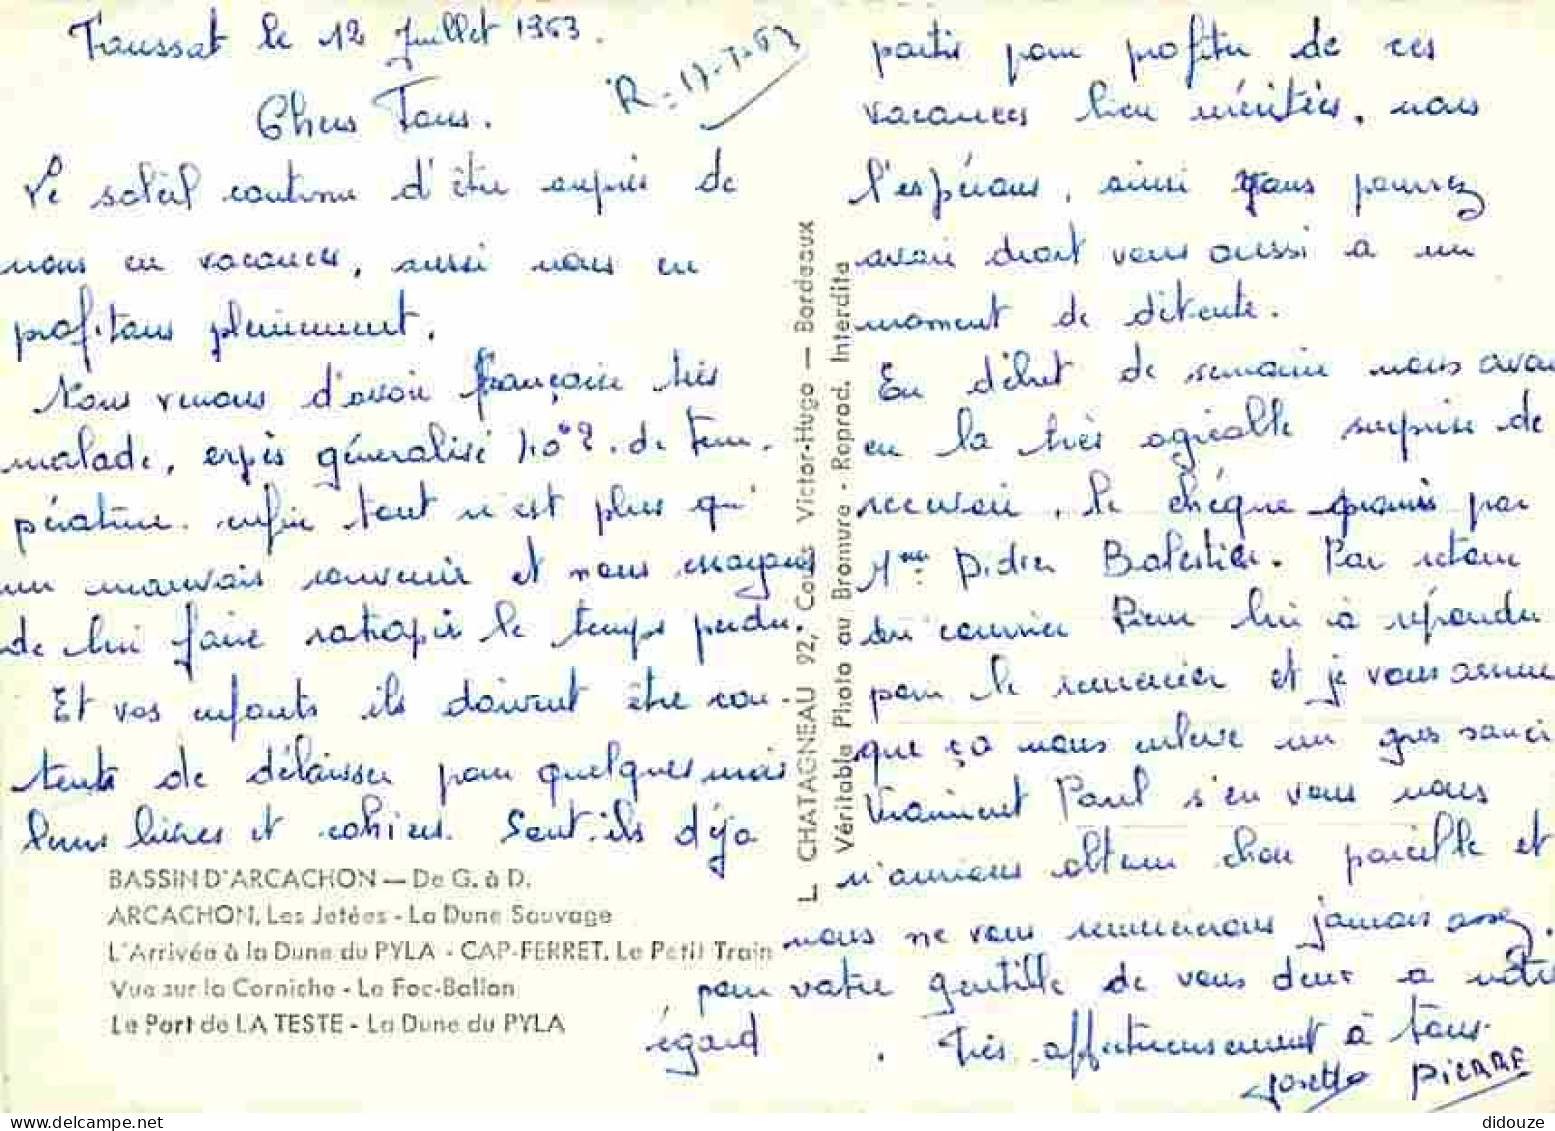 Taussat le 12 Juillet 1963.
R = 17-7-63
Chers Tous.
Le soleil continue d'être auprès de
nous en vacances, aussi nous en
profitons pleinement.
Nous venons d'avoir françoise très
malade, 40°2. de tem-
pérature. enfin tout n'est plus qu'
un mauvais souvenir et nous essayons
de lui faire ratraper le temps perdu.
Et vos enfants ils doivent être con-
tents de délaisser pour quelques mois
leurs livres et cahiers. Sont-ils déja
BASSIN D'ARCACHON — De G. à D.
ARCACHON, Les Jetées - La Dune Sauvage
L'Arrivée à la Dune du PYLA - CAP-FERRET, Le Petit Train
Vue sur la Corniche - Le Foc-Ballon
Le Port de LA TESTE - La Dune du PYLA
L. CHATAGNEAU 92, Cours Victor-Hugo — Bordeaux
Véritable Photo au Bromure - Reprod. Interdite
partis pour profiter de ces
vacances bien méritées, nous
l'espérons, ainsi vous pourrez
avoir droit vous aussi a un
moment de détente.
En début de semaine nous avons
eu la très agréable surprise de
recevoir, le chéque promis par
Mme Didier Balestier. Par retour
du courrier Pierre lui à répondu
pour le remercier et je vous assure
que ça nous enlève un gros souci
Vraiment Paul s'en vous nous
n'aurions obtenu chose pareille et
nous ne vous remercierons jamais assez.
pour votre gentille de vous deux a notre
égard. Très affectueusement à tous.
Josette PIERRE
didouze